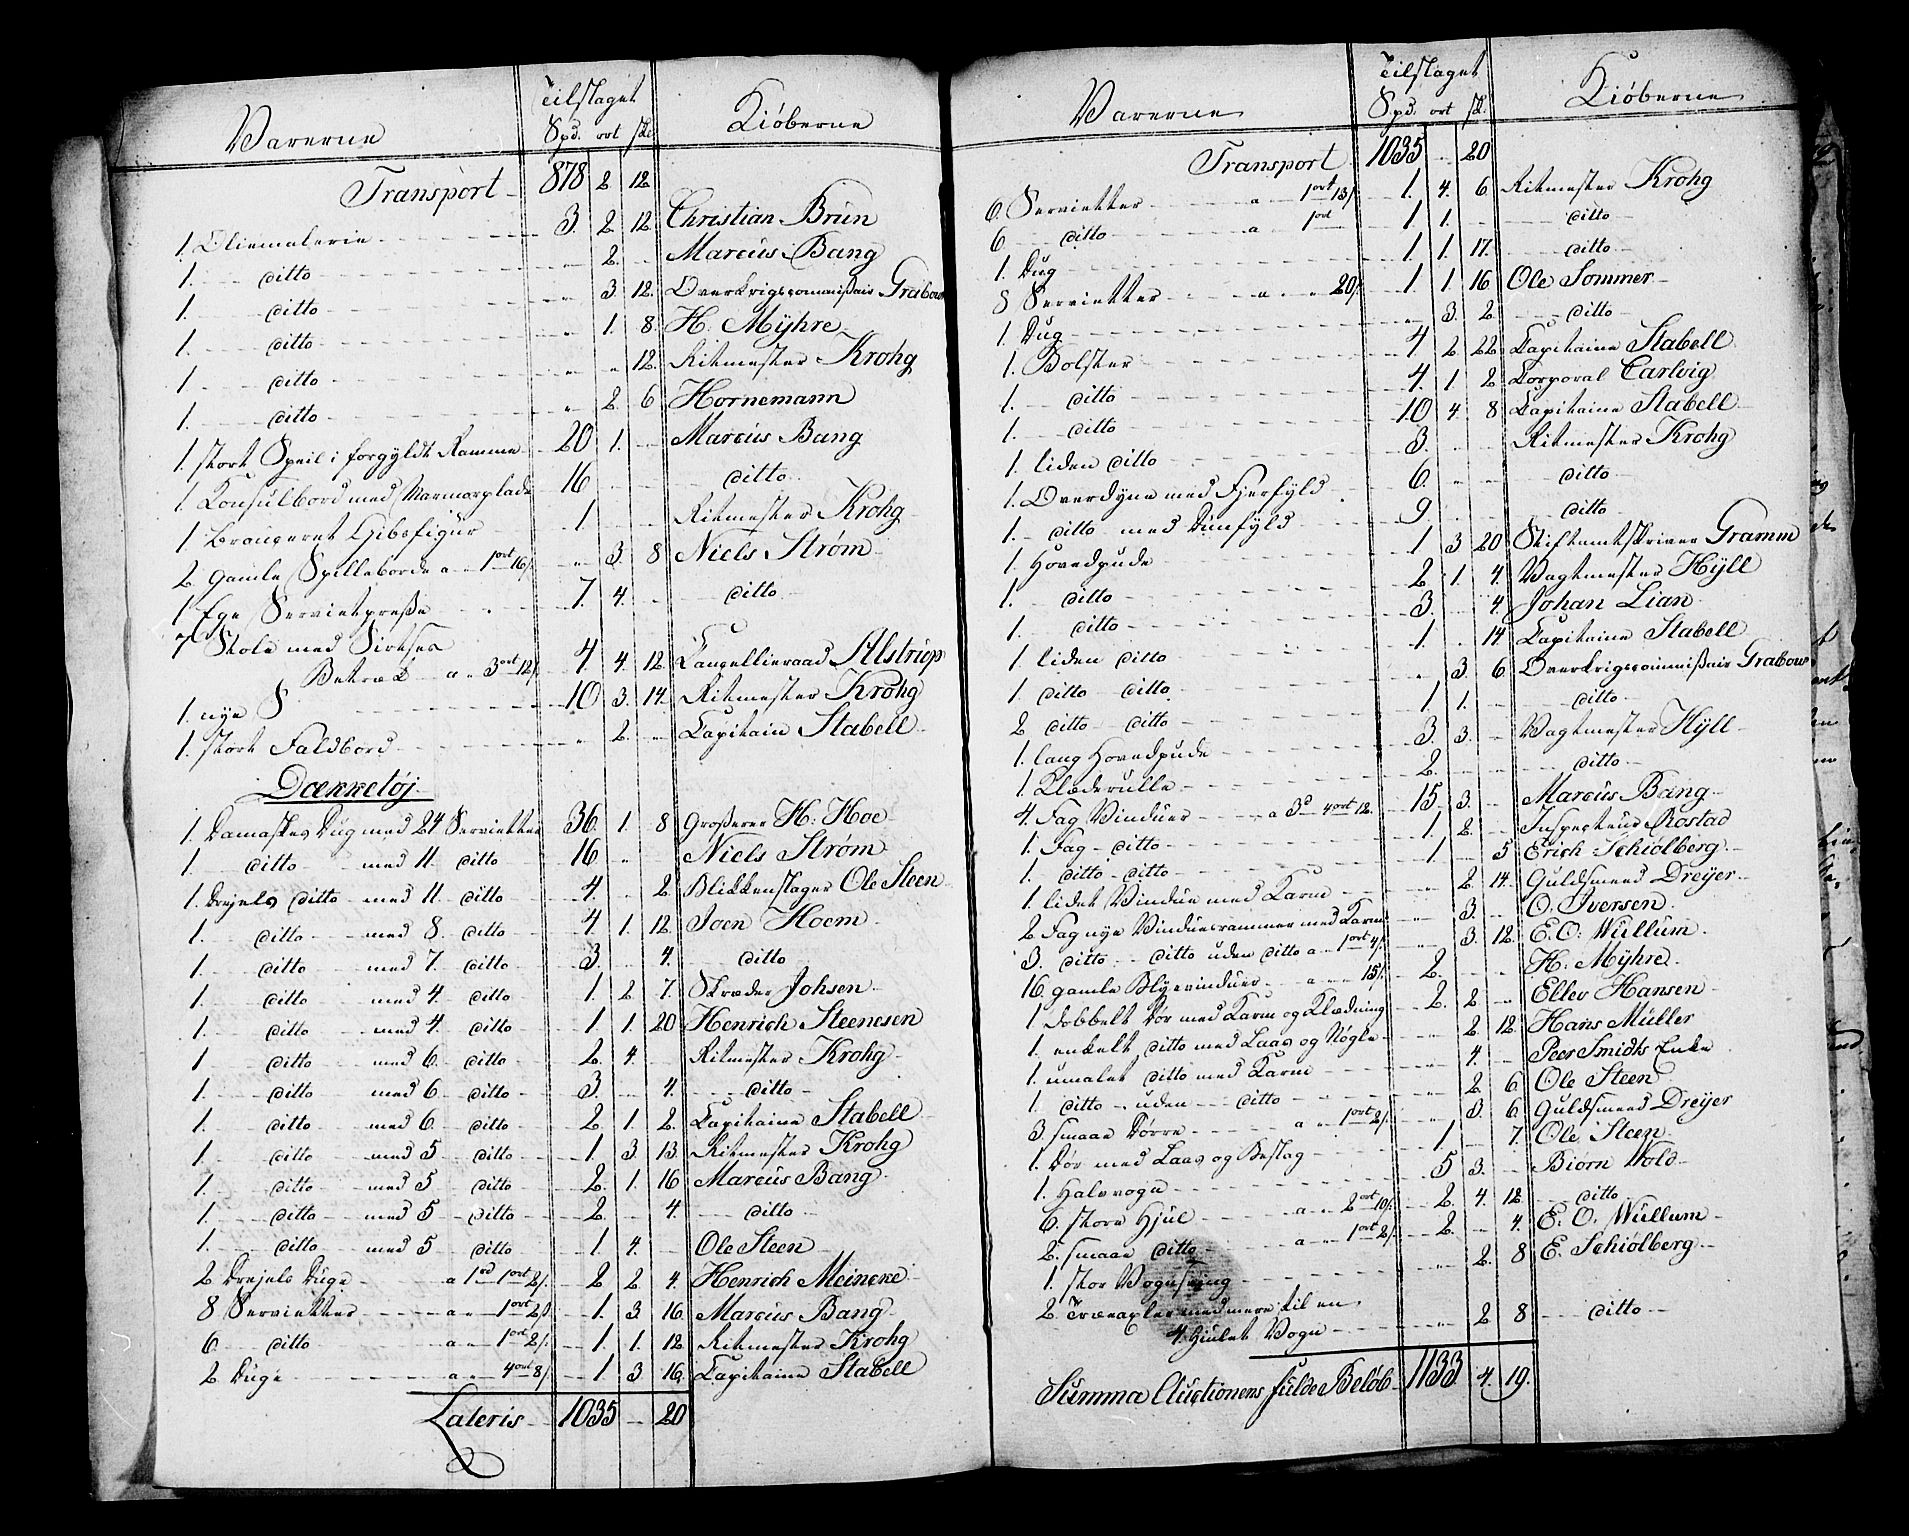 Varerne Tilslaget Kiøberne
Spd. ort sk.
Transport 878 2 12
1. Oliemalerie 3. 2 12. Christian Brun
1. ditto " 2. Marcus Bang
1. ditto " 3. 12. Overkrigscommissair Grabow
1. ditto " 1. 8. H. Mÿhre
1. ditto " " 12. Ritmester Krohg
1. ditto " 2. 6 Hornemann
1. stort Speil i forgyldt Ramme 20 1. Marcus Bang
1. Konsulbord med Marmorplade 16 ditto
1. Bronceret Gibsfigur 1 Ritmester Krohg
2. gamle Spilleborde a 1 ort 16/. " 3. 8 Niels Strøm
1. Ege Servietpresse 7. 4. ditto
7 Stole med Sirtses
Betræk a 3 ort 12/. 4 4. 12. Cancellieraad Alstrup
1. nye S 10 3. 14. Ritmester Krohg
1. stort Faldbord " 2. " Capitain Stabell
Dækketøj
1. Damaskes Dug med 24 Servietter 36. 1. 8 Grosserer H. Hoe
1. ditto med 11. ditto 16 " Niels Strøm
1. Drejels ditto med 11. ditto 4. 2. Blikkenslager Ole Steen
1. ditto med 8. ditto 4 1. 12. Joen Hoem
1. ditto med 7. ditto 3. 4. ditto
1. ditto med 4. ditto 1. 2 7. Skræder Johsen
1. ditto med 4. ditto 1 1. 20 Henrich Steenesen
1 ditto med 6. ditto 2. 4. Ritmester Krohg
1. ditto med 6. ditto 3. 4. ditto
1. ditto med 6. ditto 2 1. 2. Capitaine Stabell
1. ditto med 5 ditto 1 3 13. Ritmester Krohg
1. ditto med 5 ditto 2. 1. 16 Marcus Bang
1. ditto med 5 ditto 2. 4. ditto
1. ditto med 5 ditto 1. 4. Ole Steen
2 Drejels Duge a 1 1 ort 2/. 2 2. 4. Henrich Meincke
8 Servietter a 1 ort 2/. 1. 3 16. Marcus Bang
6 ditto a 1 ort 2/. 1 1. 12 Ritmester Krohg
2 Duge a 4 ort 8/. 1 3. 16. Capitaine Stabell
Lateris 1035 20
Varerne Tilslaget Kiøberne
Spd. ort sk.
Transport 1035 20
6. Servietter a 1 ort 13/. 1. 4. 6 Ritmester Krohg
6. ditto a 1 ort 1 1. ditto
1. Dug 1 1. 17. ditto
8 Servietter a 20/. 1 1. 16 Ole Sommer
1. Dug " 3. 2 ditto
1. Bolster 4 2. 22 Capitaine Stabell
1. ditto 4. 1 2 Corporal Carlvig
1. ditto 10 4. 8 Capitaine Stabell
1. liden ditto 3. Ritmester Krohg
1. Overdyne med Fjerfyld 6. " ditto
1. ditto med Dunfyld 9 ditto
1. Hovedpude 1 3. 20 Stiftamtskriver Gramm
1. ditto 2 1. 4. Vagtmester Hÿll
1. ditto 3. 4. Johan Lian
1. liden ditto 1 14. Capitaine Stabell
1. ditto ditto " 3. 6. Overkrigscommissair Grabow
2 ditto ditto 1 1. ditto
1. lang Hovedpude 3 3. Vagtmester Hÿll
1. Klæderulle 2. ditto
4. Fag Vinduer a 3 4 ort 12. 15 3. Marcus Bang
1. Fag ditto 1. 2. Inspecteur Rostad
1. ditto ditto 1 5 Erich Schiølberg
1. lidet Vindue med Karm " 2. 14. Guldsmed Dreÿer
2. Fag nye Vinduesrammer med Karm " 3. O. Iversen
3. ditto ditto uden ditto a 1 ort 4/. " 3. 12. E. O. Wullum
16. gamle Blyevinduer a 15/. 2. H. Mÿhre
1. dobbelt Dør med Karm og Klædning 2. 2. " Ellev Hansen
1. enkelt ditto med Laas og Nøgle 2. 12. Hans Müller
1. umalet ditto med Karm " 4. Peer Smidts Enke
1. ditto uden ditto " 2. 6. Ole Steen
3. smaae Dørre a 1 ort 2/. " 3. 6. Guldsmed Dreÿer
1. Dør med Laas og Beslag 1 7. Ole Steen
1. Halvvogn 5 3. Biørn Wold
6. store Hjul a 2 ort 10/. 2. 4. 12. ditto
2. smaae ditto a 1 ort 2/. 2 4. E. O. Wullum
1. stor Vogn " 2. 8 E. Schiølberg
2. Træaxler med mere til en
4. Hjulet Vogn " 2 8 ditto
Summa Auctionens fulde Beløb 1133 4. 19.